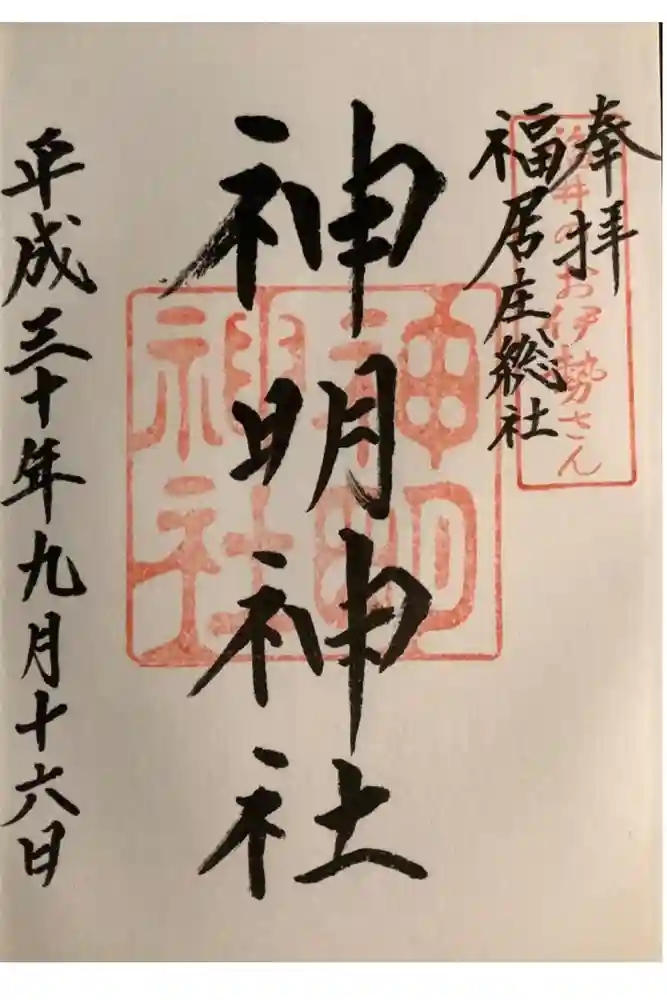 奉拝
福井のお伊勢さん
福居庄総社
神明神社
神明神社
平成三十年九月十六日